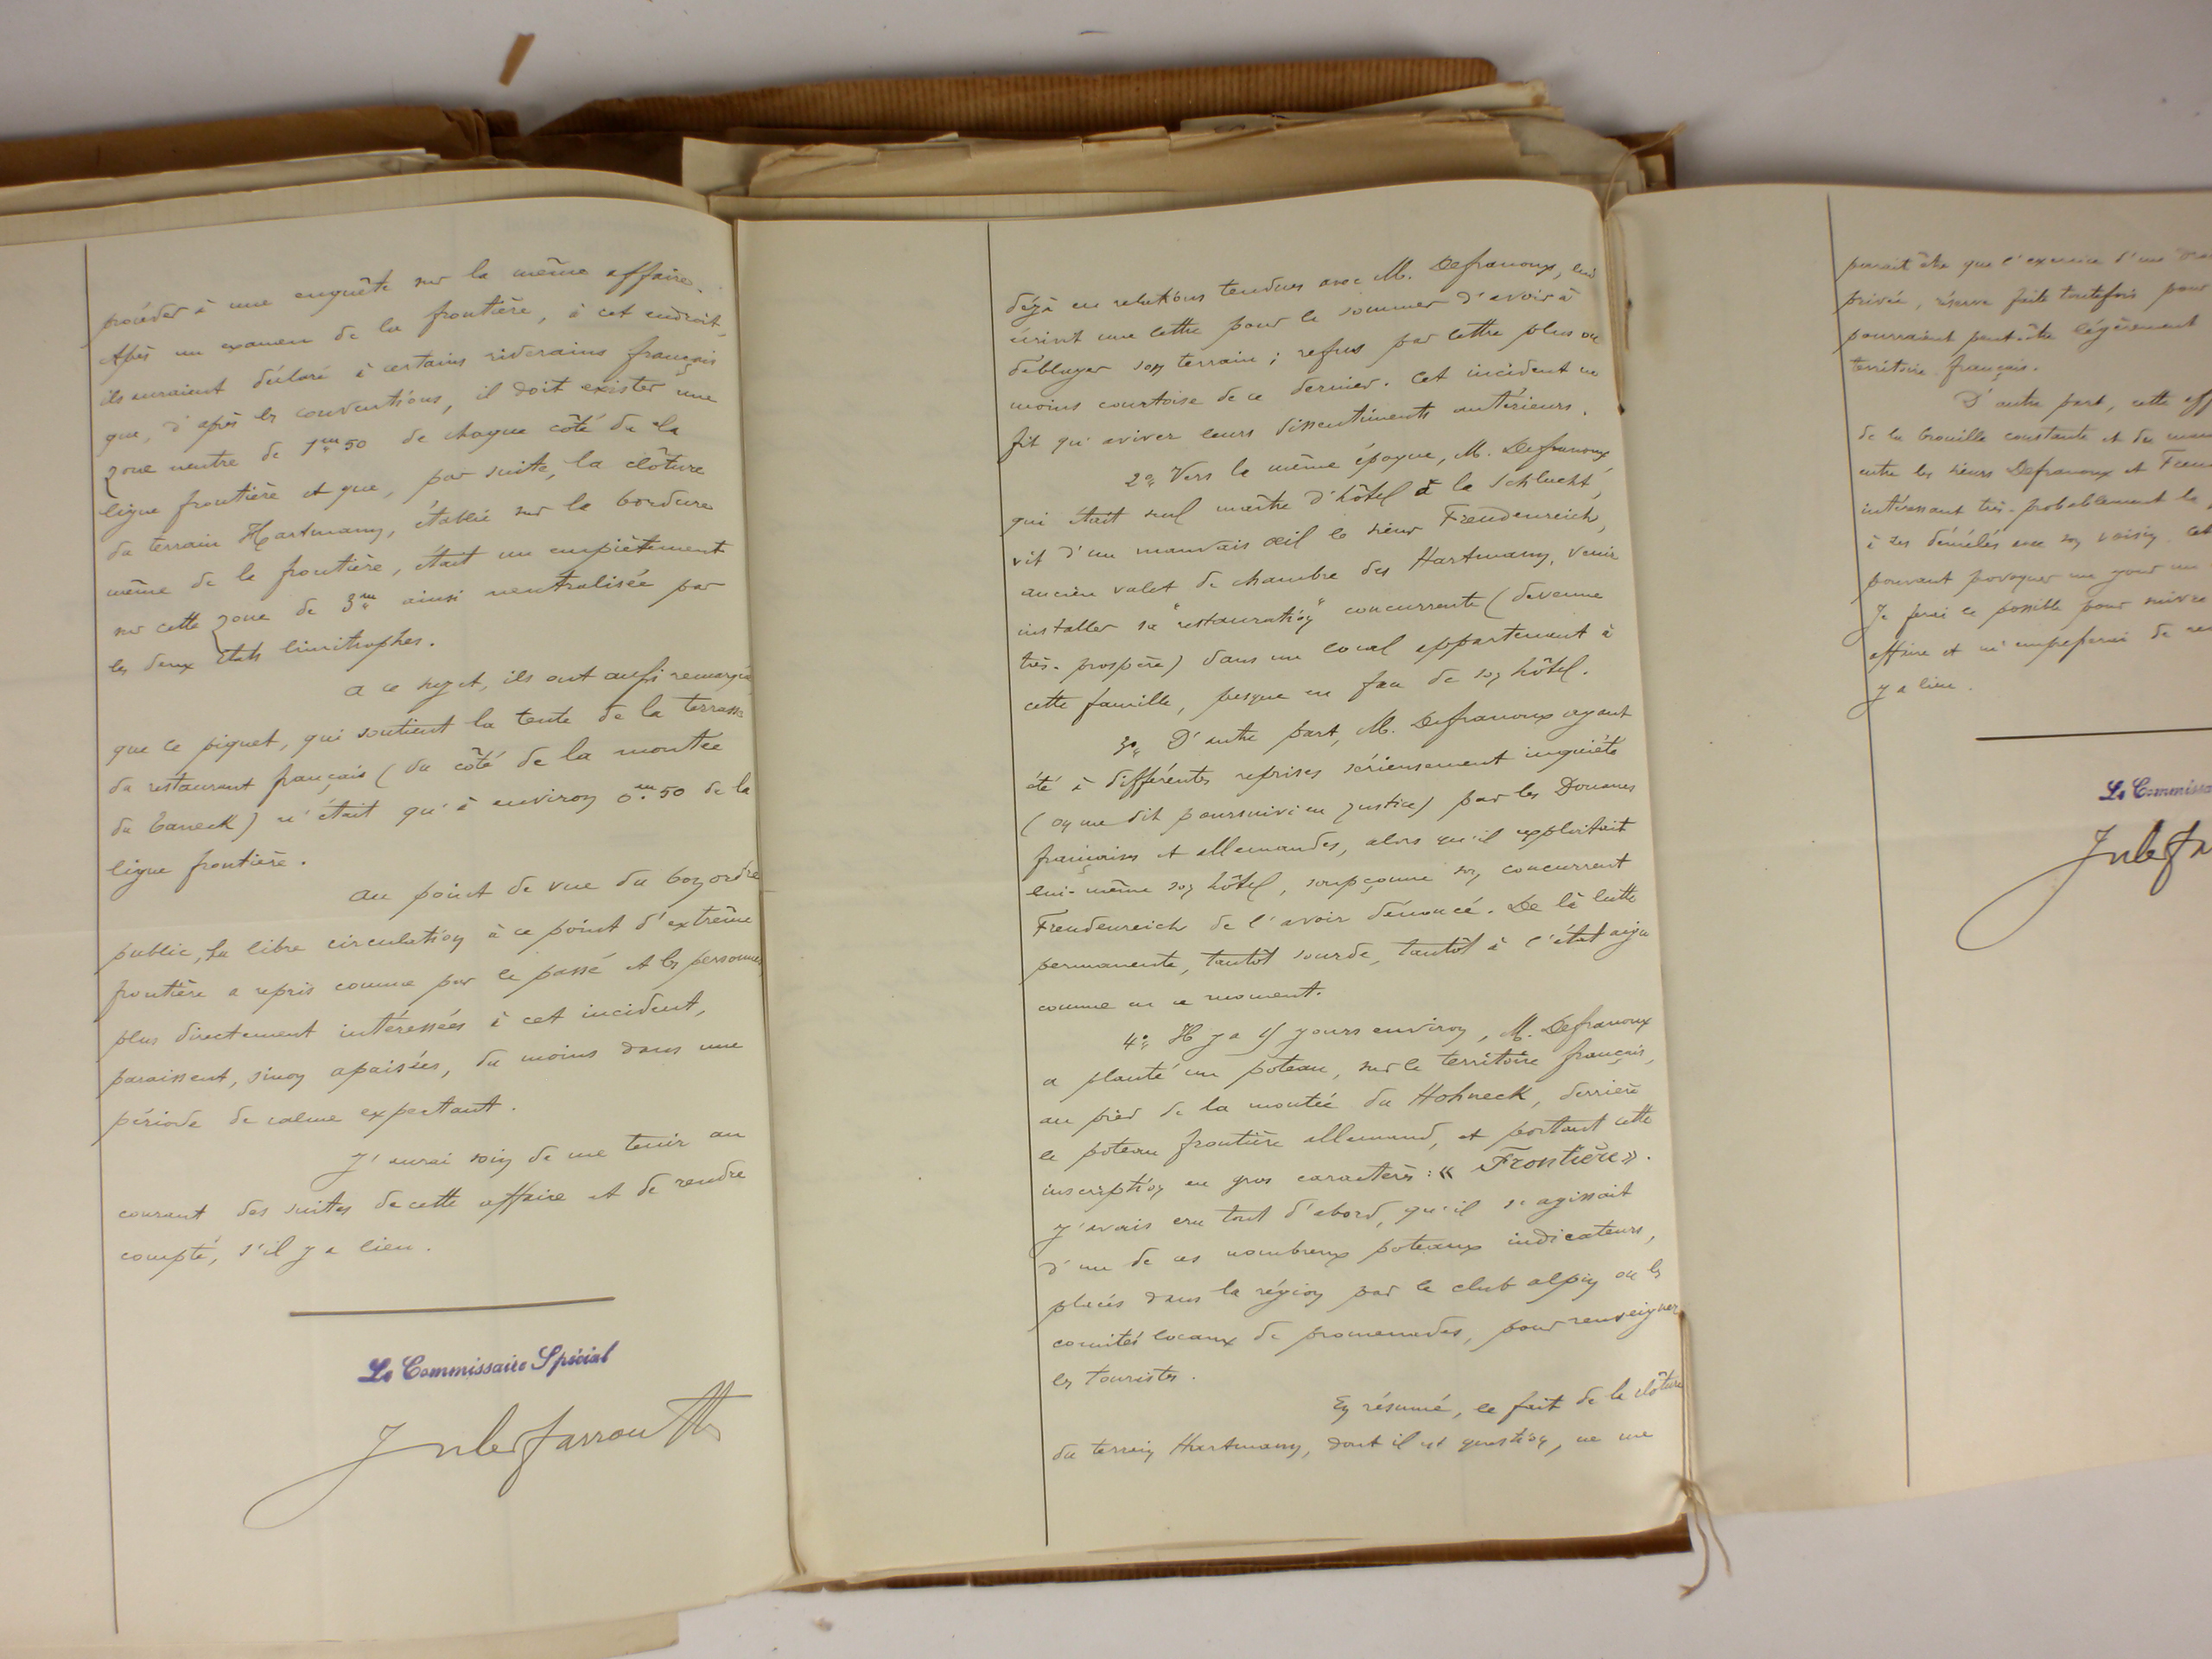 procéder à une enquête sur la même affaire.
Après un examen de la frontière, à cet endroit,
ils auraient déclaré à certains riverains français
que, d'après les conventions, il doit exister une
zone neutre de 1m50 de chaque côté de la
ligne frontière et que, par suite, la clôture
du terrain Hartmann, établie sur la bordure
même de la frontière, était un empiètement
sur cette zone de 3m ainsi neutralisée par
les deux Etats limitrophes.
A ce sujet, ils ont aussi remarqué
que le piquet, qui soutient la tente de la terrasse
du restaurant français (du côté de la montée
du ) n'était qu'à environ 0m50 de la
ligne frontière.
Au point de vue du bon ordre
public, la libre circulation à ce point d'extrême
frontière a repris comme par le passé et les personnes
plus directement intéressées à cet incident,
paraissent, sinon apaisées, du moins dans une
période de calme expectant.
J'aurai soin de me tenir au
courant des suites de cette affaire et de rendre
compte, s'il y a lieu.
Le Commissaire Spécial
déjà en relations tendues avec M. Defranoux, lui
écrivit une lettre pour le sommer d'avoir à
déblayer son terrain ; refus par lettre plus ou
moins courtoise de ce dernier. Cet incident ne
fit qu'aviver leurs dissentiments antérieurs.
2° Vers la même époque, M. Defranoux,
qui était seul maître d'hôtel à la Schlucht,
vit d'un mauvais œil le sieur Freudenreich,
ancien valet de chambre des Hartmann, venir
installer sa "restauration" concurrente (devenue
très-prospère) dans un local appartenant à
cette famille, presque en face de son hôtel.
3° D'autre part, M. Defranoux ayant
été à différentes reprises sérieusement inquiété
(on me dit poursuivi en justice) par les Douanes
françaises et allemandes, alors qu'il exploitait
lui-même son hôtel, soupçonne son concurrent
Freudenreich de l'avoir dénoncé. De là lutte
permanente, tantôt sourde, tantôt à l'état aigu
comme en ce moment.
4° Il y a jours environ, M. Defranoux
a planté un poteau, sur le territoire français,
au pied de la montée du Hohneck, derrière
le poteau frontière allemand, et portant cette
inscription en gros caractères : « Frontière ».
J'avais cru tout d'abord, qu'il s'agissait
d'un de ces nombreux poteaux indicateurs,
placés dans la région par le club alpin ou les
comités locaux de promenades, pour renseigner
les touristes.
En résumé, le fait de la clôture
du terrain Hartmann, dont il est question, ne me
parait être que l'exercice d'un
privée, réserve faite toutefois pour
pourraient peut-être légèrement
territoire français.
D'autre part, cette
de la brouille constante et du
entre les sieurs Defranoux et
intéressant très-probablement le
à ses démêlés avec son voisin.
pouvant provoquer un jour un
Je ferai le possible pour suivre
affaire et m'empresserai de
y a lieu.
Le